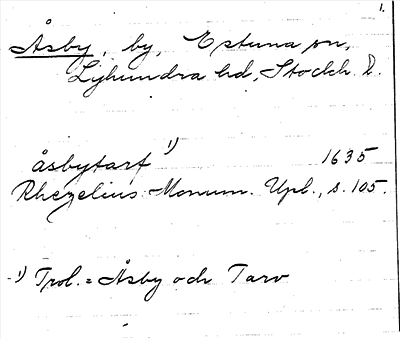 1.
Åsby, by, Estuna sn,
Lyhundra hd, Stockh. l.
åsbytarf 1) 1635
Rhezelius: Monum. Upl., s. 105.
1) Trol. = Åsby och Tarv